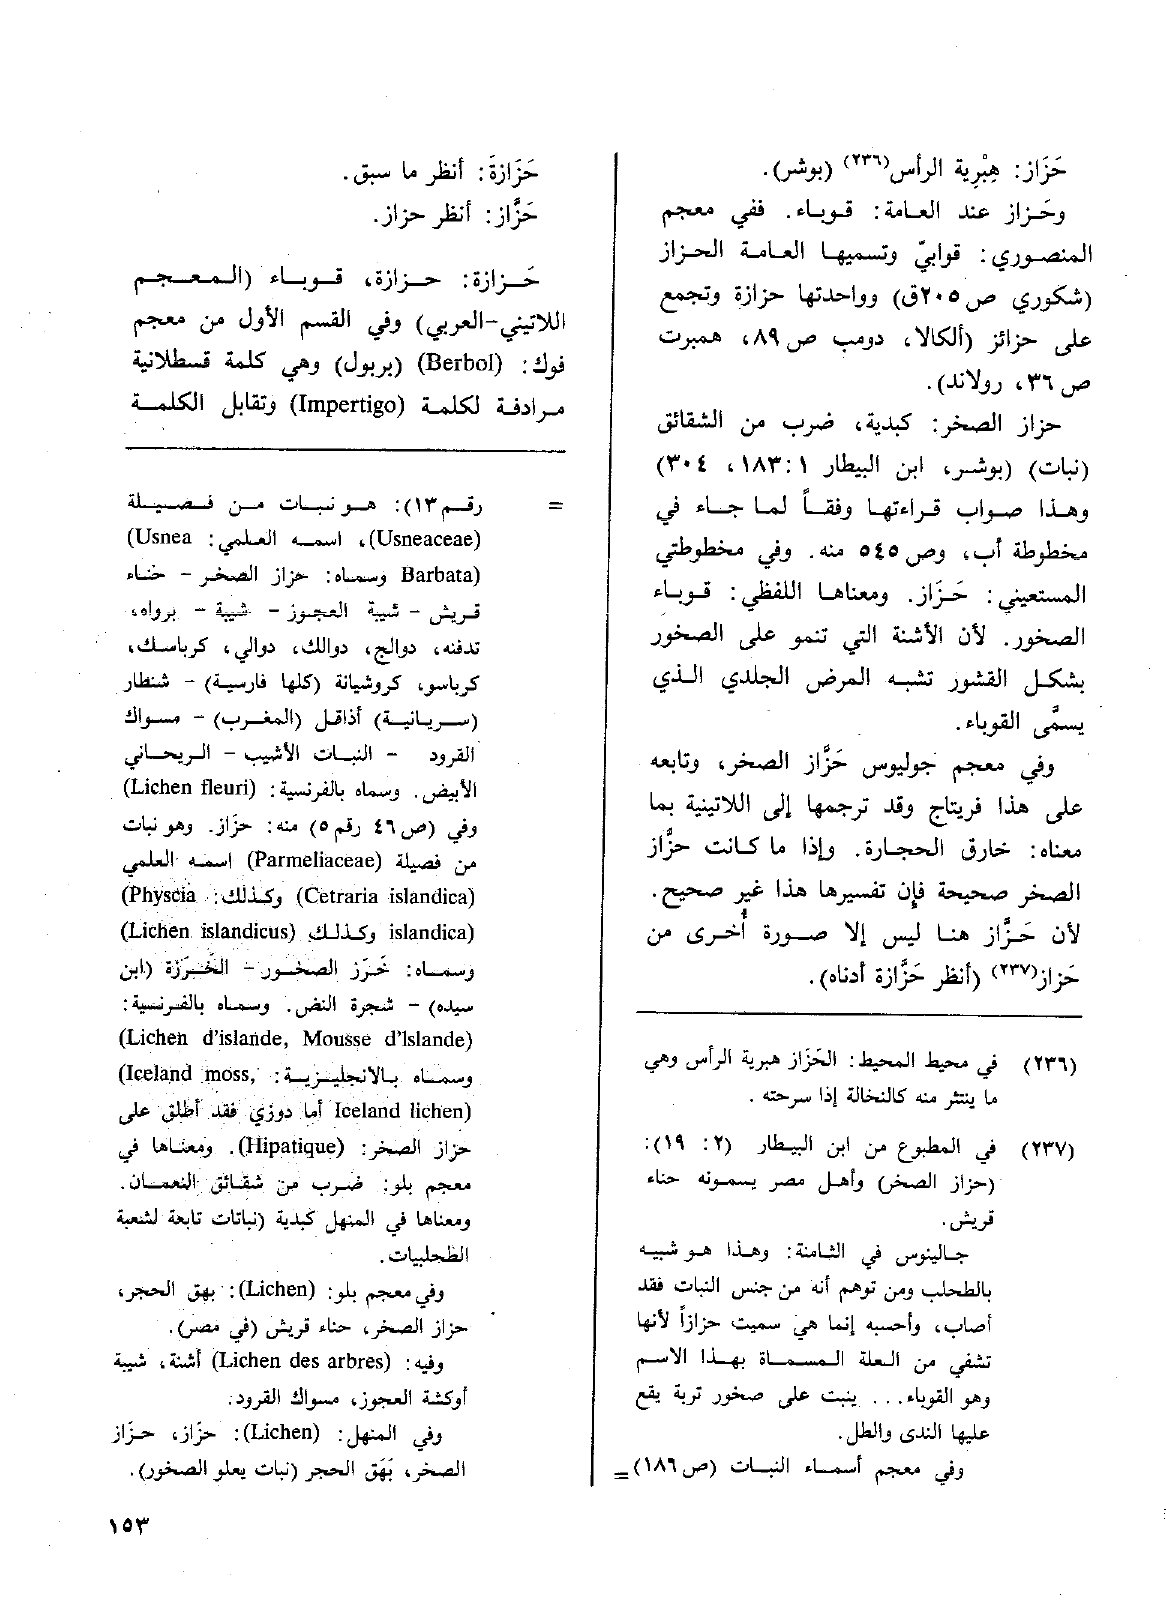 حَزَاز: هِبْرِية الرأس(٢٣٦) (بوشر).
وحَزاز عند العامة: قوباء. ففي معجم
المنصوري: قوابيّ وتسميها العامة الحزاز
(شكوري ص٢٠٥ق) وواحدتها حزازة وتجمع
على حزائز (ألكالا، دومب ص٨٩، همبرت
ص٣٦، رولاند).
حزاز الصخر: كبدية، ضرب من الشقائق
(نبات) (بوشر، ابن البيطار ١: ١٨٣، ٣٠٤)
وهذا صواب قراءتها وفقاً لما جاء في
مخطوطة أب، وص٥٤٥ منه. وفي مخطوطتي
المستعيني: حَزَاز. ومعناها اللفظي: قوباء
الصخور. لأن الأشنة التي تنمو على الصخور
بشكل القشور تشبه المرض الجلدي الذي
يسمَّى القوباء.
وفي معجم جوليوس حَزَّاز الصخر، وتابعه
على هذا فريتاج وقد ترجمها إلى اللاتينية بما
معناه: خارق الحجارة. وإذا ما كانت حزَّاز
الصخر صحيحة فإن تفسيرها هذا غير صحيح.
لأن حَزَّاز هنا ليس إلا صورة أُخرى من
حَزاز(٢٣٧) (أنظر حَزَّازة أدناه).
(٢٣٦) في محيط المحيط: الحَزَاز هبرية الرأس وهي
ما ينتثر منه كالنخالة إذا سرحته.
(٢٣٧) في المطبوع من ابن البيطار (٢: ١٩):
(حزاز الصخر) وأهل مصر يسمونه حناء
قريش.
جالينوس في الثامنة: وهذا هو شبيه
بالطحلب ومن توهم أنه من جنس النبات فقد
أصاب، وأحسبه إنما هي سميت حزازاً لأنها
تشفي من العلة المسماة بهذا الاسم
وهو القوباء... ينبت على صخور تربة يقع
عليها الندى والطل.
وفي معجم أسماء النبات (ص١٨٦) =
حَزَازةَ: أنظر ما سبق.
حَزَّاز: أنظر حزاز.
حَزازة: حزازة، قوباء (المعجم
اللاتيني-العربي) وفي القسم الأول من معجم
فوك: (Berbol) (بربول) وهي كلمة قسطلانية
مرادفة لكلمة (Impertigo) وتقابل الكلمة
= رقم١٣): هو نبات من فصيلة
(Usneaceae)، اسمه العلمي: (Usnea
Barbata) وسماه: حزاز الصخر - حناء
قريش - شيبة العجوز - شيبة - برواه،
تدفنه، دوالج، دوالك، دوالي، كرباسك،
كرباسو، كروشيانة (كلها فارسية) - شنطار
(سريانية) أذاقل (المغرب) - مسواك
القرود - النبات الأشيب - الريحاني
الأبيض. وسماه بالفرنسية: (Lichen fleuri)
وفي (ص٤٦ رقم٥) منه: حزَاز. وهو نبات
من فصيلة (Parmeliaceae) اسمه العلمي
(Cetraria islandica) وكذلك: (Physcia
islandica) وكذلك (Lichen islandicus)
وسماه: خَرَز الصخور - الخَرَزة (ابن
سيده) - شجرة النض. وسماه بالفرنسية:
(Lichen d'islande, Mousse d'Islande)
وسماه بالانجليزية: (Iceland moss,
Iceland lichen) أما دوزي فقد أطلق على
حزاز الصخر: (Hipatique). ومعناها في
معجم بلو: ضرب من شقائق النعمان.
ومعناها في المنهل كبدية (نباتات تابعة لشعبة
الطحلبيات.
وفي معجم بلو: (Lichen): بهق الحجر،
حزاز الصخر، حناء قريش (في مصر).
وفيه: (Lichen des arbres) أشنة، شيبة
أوكشة العجوز، مسواك القرود.
وفي المنهل: (Lichen): حزَاز، حزاز
الصخر، بَهَق الحجر (نبات يعلو الصخور).
١٥٣